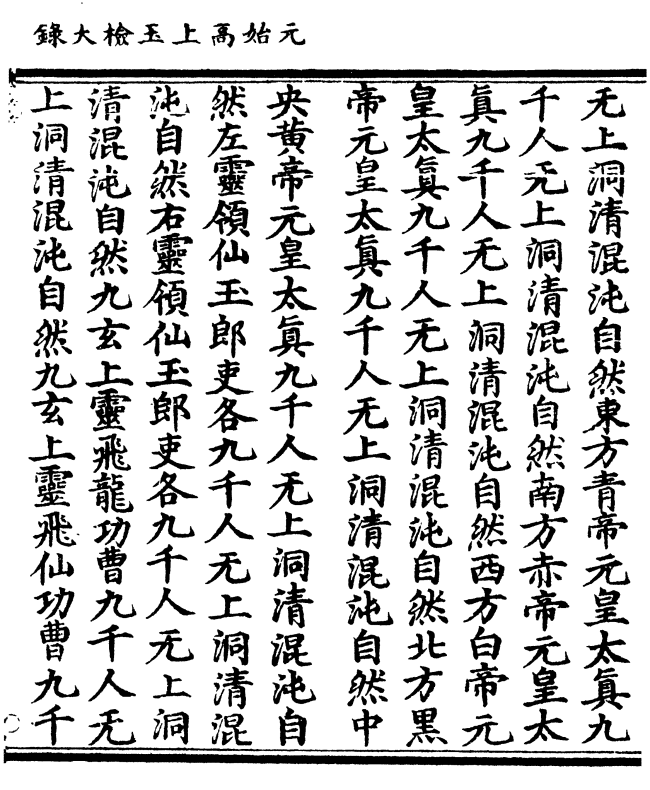 元始高上玉檢大錄
无上洞清混沌自然東方青帝元皇太眞九
千人无上洞清混沌自然南方赤帝元皇太
眞九千人无上洞清混沌自然西方白帝元
皇太眞九千人无上洞清混沌自然北方黑
帝元皇太眞九千人无上洞清混沌自然中
央黃帝元皇太眞九千人无上洞清混沌自
然左靈領仙玉郎吏各九千人无上洞清混
沌自然右靈領仙玉郎吏各九千人无上洞
清混沌自然九玄上靈飛龍功曹九千人无
上洞清混沌自然九玄上靈飛仙功曹九千